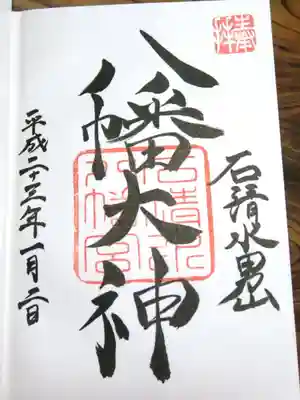 奉拝
石清水男山
八幡大神
石清水八幡宮
平成二十三年一月二日